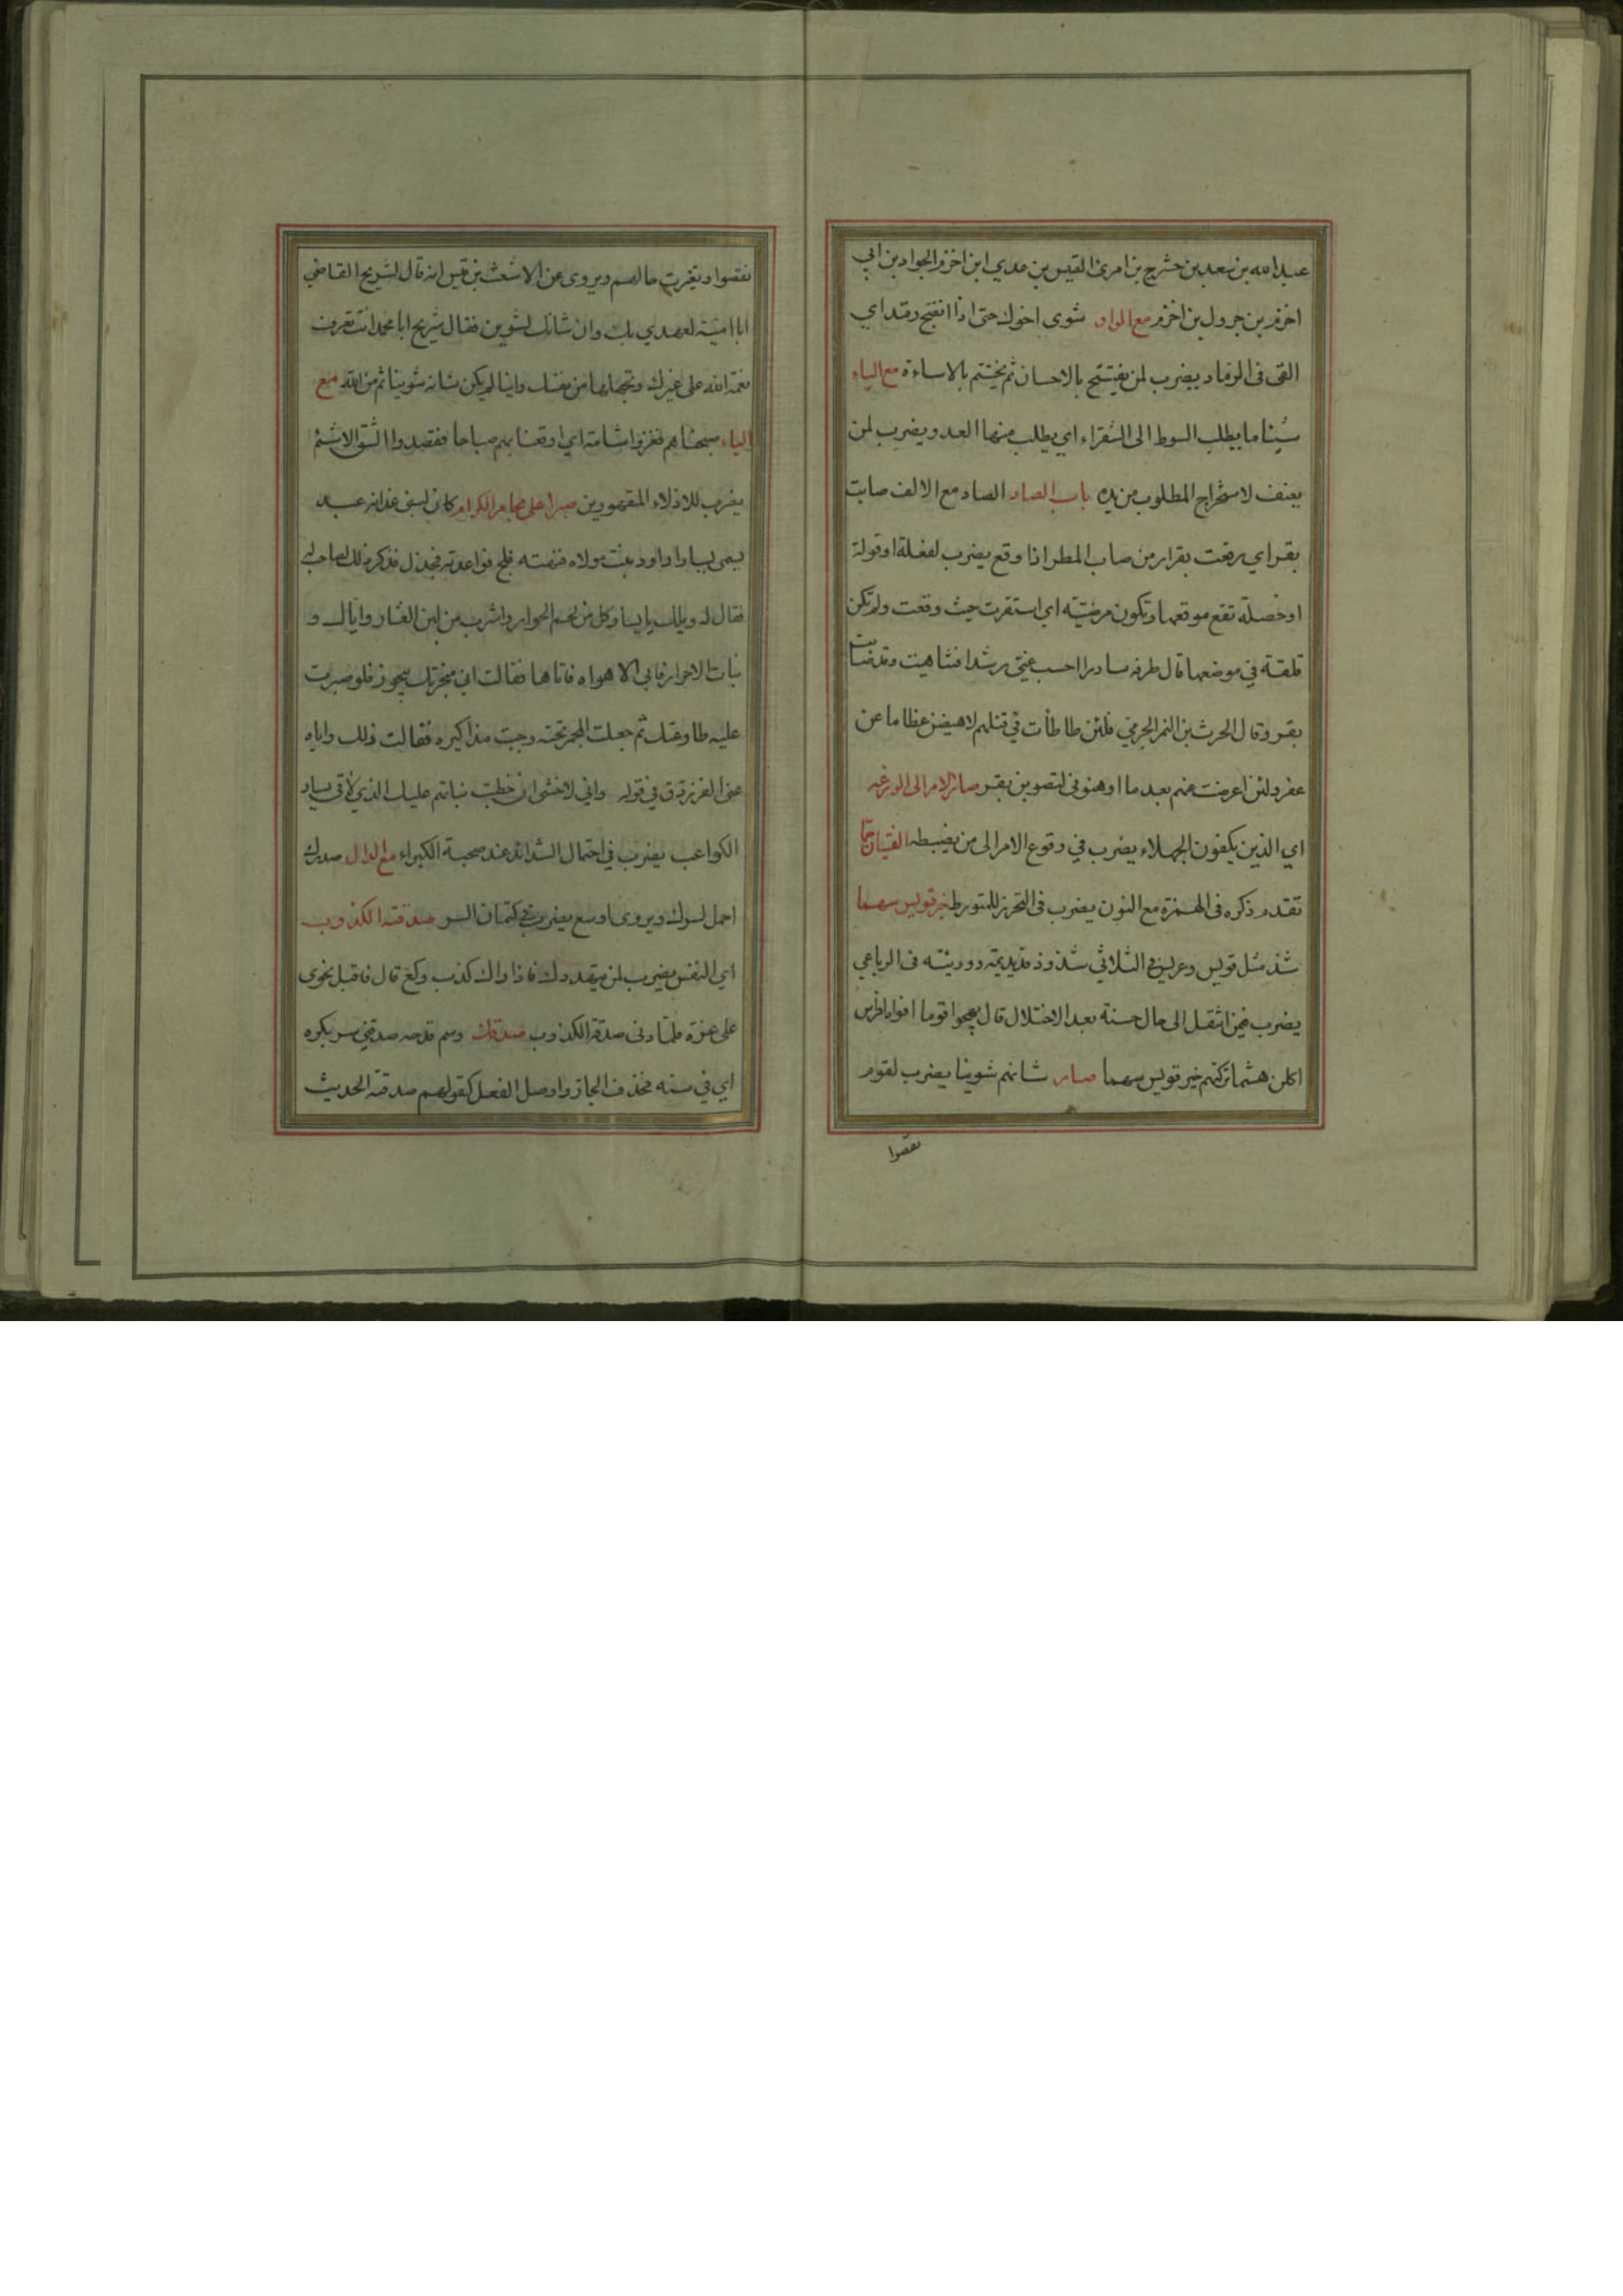 عبدالله بن سعد بن حشرج بن امرئ القيس بن عدي ابن اخزم الجواد بن ابي
اخزم بن جرول بن اخزم مع الواو شوى اخوك حتى اذا انضج رمد اي
القى فى الرماد يضرب لمن يفتتح بالاحسان ثم يختتم بالاساءة مع الياء
شيئا ما يطلب السوط الى الشقراء اي يطلب منها العدو يضرب لمن
يعنف لاستخراج المطلوب من يده باب الصاد الصاد مع الالف صابت
بقر اي وقعت بقرار من صاب المطر اذا وقع يضرب لفعلة او قولة
او خصلة تقع موقعها وتكون مرضيّة اي استقرت حيث وقعت ولم تكن
قلقة في موضعها قال طرفه سادرا احسب غيّى رشدا فتناهيت وقد صابت
بقر وقال الحرث بن النمر الجرمي فلئن طاطأت في قتلهم لاهيضن عظاما عن
عفر ولئن اعرضت عنهم بعد ما اوهنونى لتصوبن بقر صار الامر الى الوزعه
اي الذين يكفون الجهلاء يضرب في وقوع الامر الى من يضبطه الفتيان حمما
تقدم ذكره فى الهمزة مع النون يضرب فى التحرز للمتورط خير قويس سهما
شذ مثل قويس وعريس في الثلاثي شذوذ قديديمة ووريئة فى الرباعي
يضرب فيمن انتقل الى حال حسنة بعد الاختلال قال
اكلن هشما تركتهم خير قويس سهما صار شانهم شوينا يضرب لقوم
نقصوا
نقصوا وتغيرت حالهم ويروى عن الاشعث بن قيس انه قال لشريح القاضي
ابا امية لعهدي بك وان شانك لشوين فقال شريح ابا محمد انت تعرف
نعمة الله على غيرك وتجهلها من نفسك واينا لم يكن شانه شوينا ثم من الله مع
الباء صبحناهم فغزوا شامة اي اوقعنا بهم صباحا فقصدوا الشق الاشئم
يضرب للاذلاء المقهورين صبرا على مجامر الكرام كان لبنى غدانه عبد
يسمى يسارا داود بنت مولاه فنهته فلج فواعدته فجذل فذكر ذلك لصاحب له
فقال له ويلك يا يسار كل من لحم الحوار واشرب من لبن العشار واياك و
بنات الاحرار فابى الا هواه فاتاها فقالت اني مبخرتك ببخور فلو صبرت
عليه طاوعتك ثم جعلت المجمر تحته وجبت مذاكيره فقالت ذلك واياه
عنى الفرزدق في قوله واني لاخشى ان خطبت بناتهم عليك الذي لاقى يسار
الكواعب يضرب في احتمال الشدائد عند صحبة الكبراء مع الدال صدرك
احمل لسرك ويروى اوسع يضرب في كتمان السر صدقته الكذوب
اي النفس يضرب لمن يتهددك فاذا راك كذب وكع قال فاقبل نحوى
على عزة فلما دنى صدقته الكذوب صدقك وسم قدحه صدقني سن بكره
اي في سنه فحذف الجار واوصل الفعل كقولهم صدقته الحديث